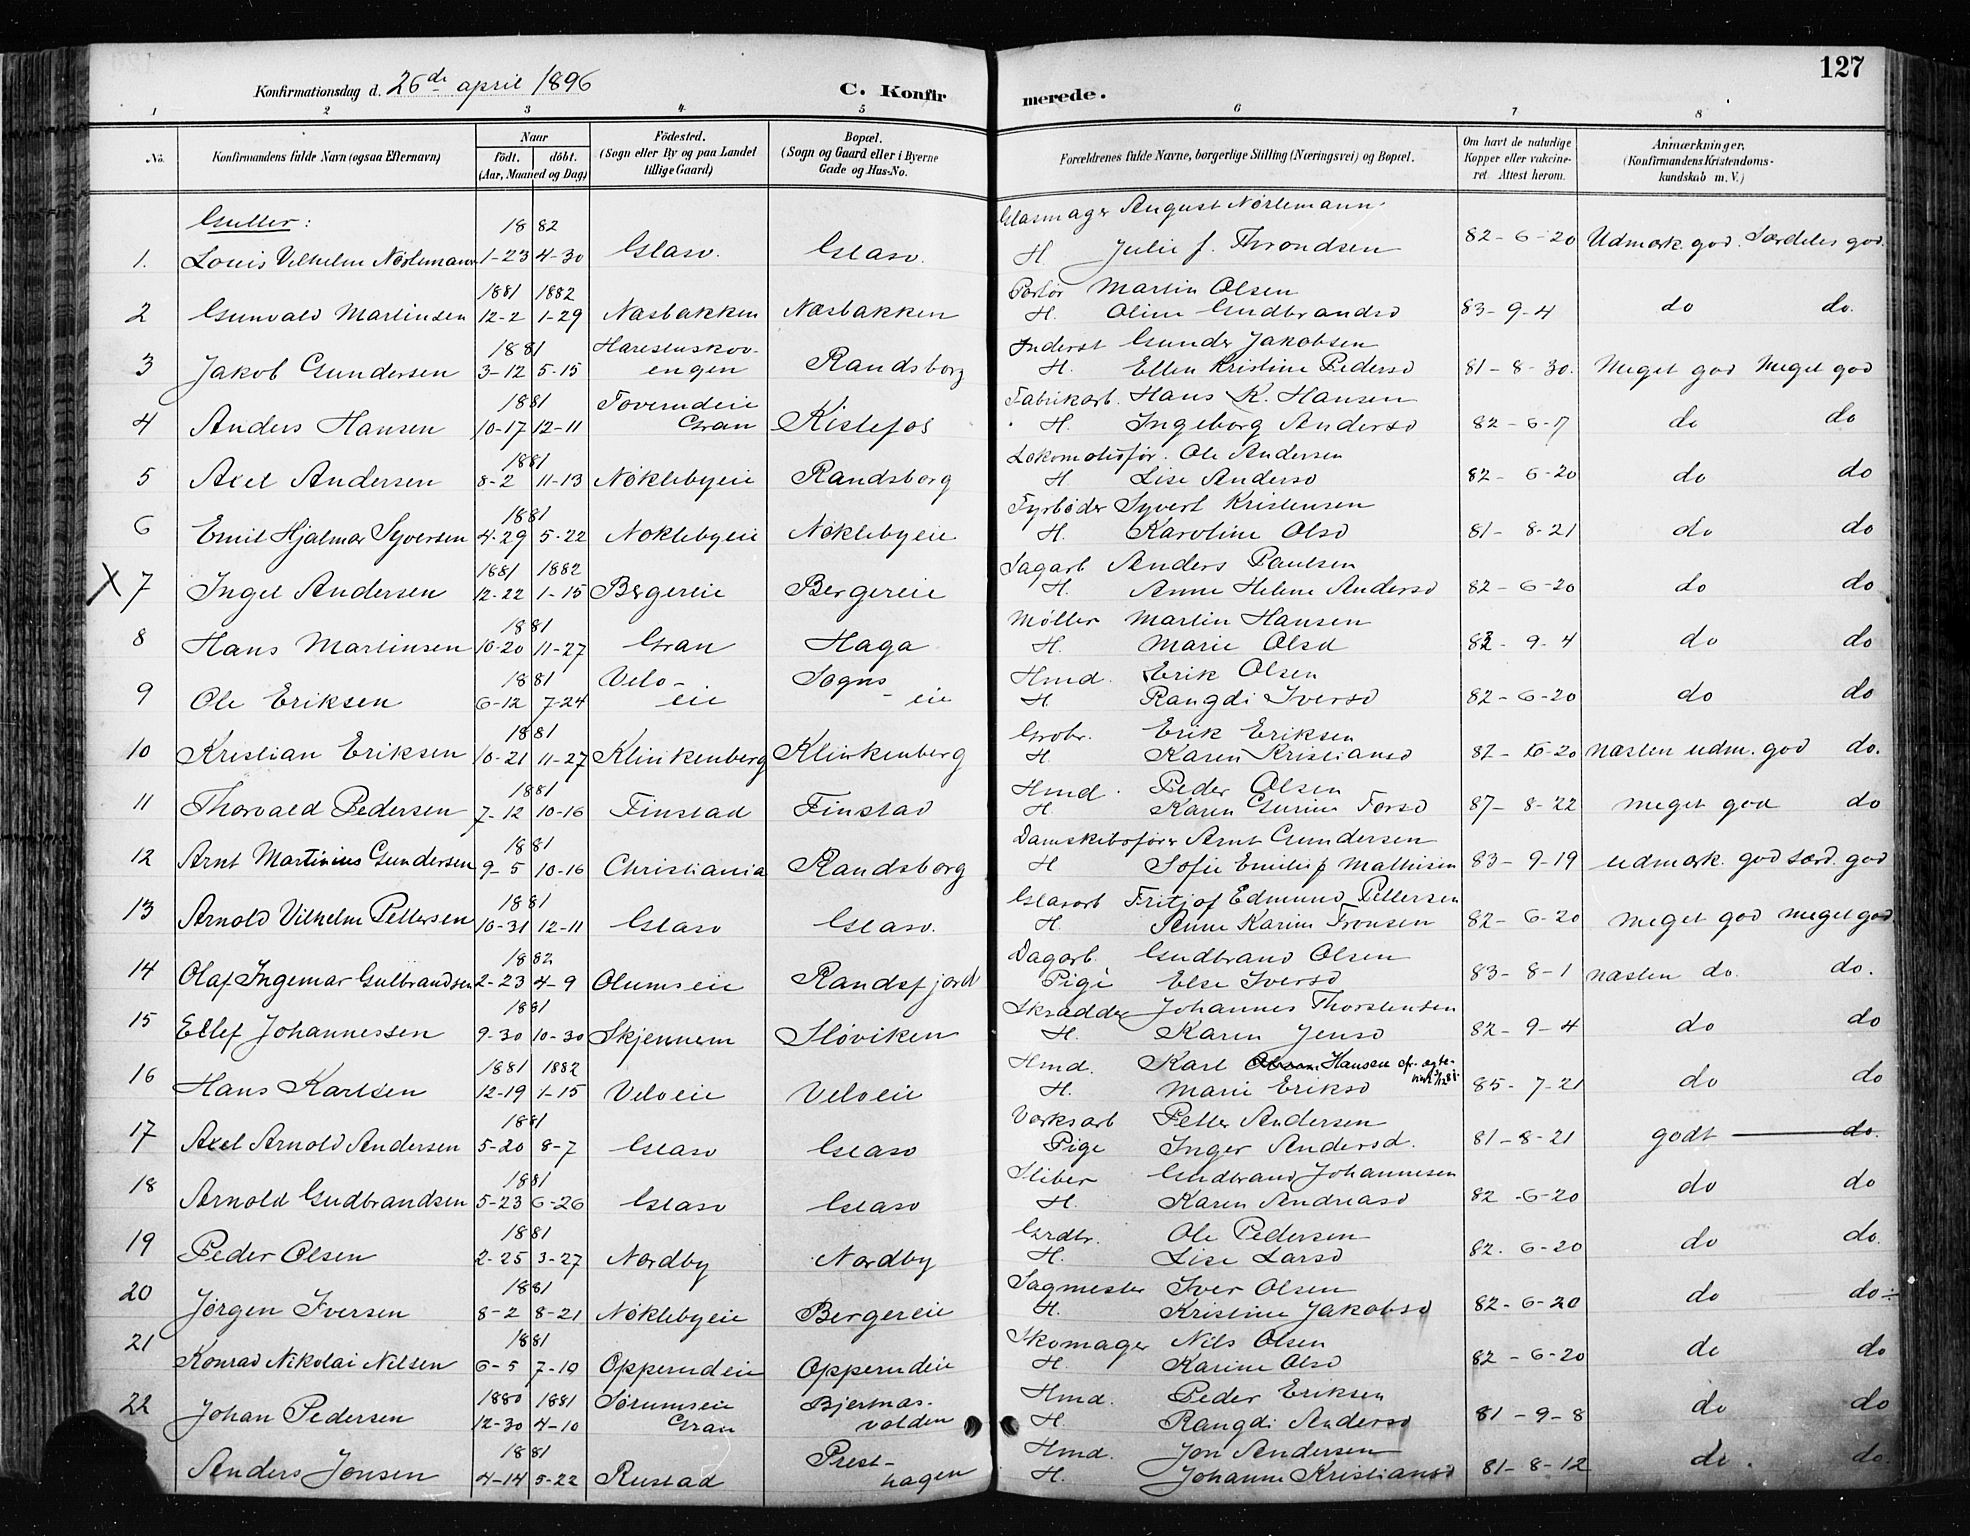 127
Konfirmationsdag d. 26de april 1896 C. Konfirmerede.
1 2 3 4 5 6 7 8
No. Konfirmandens fulde Navn (ogsaa Efternavn) Naar födt. döbt. (Aar, Maaned og Dag) Födested. (Sogn eller By og paa Landet tillige Gaard) Bopæl. (Sogn og Gaard eller i Byerne Gade og Hus-No. Forældrenes fulde Navne, borgerlige Stilling (Næringsvei) og Bopæl. Om havt de naturlige Kopper eller vakcineret. Attest herom. Anmærkninger, (Konfirmandens Kristendomskundskab m. V.)
Gutter: 1882 Glasmager August Nörlemann
1. Louis Vilhelm Nörlemann 1-23 4-30 Glasv. Glasv. H. Julie f. Throndsen 82-6-20 Udmærk. god. Særdeles god.
1881 1882 Martin Olsen
2 Gunvald Martinsen 12-2 1-29 Næsbakken Næsbakken H. Oline Gudbrandsd 83-9-4 do do.
1881 Inderst Gunder Jakobsen
3 Jakob Gundersen 3-12 5-15 engen Randsborg H. Ellen Kristine Pedersd 81-8-30. Meget god Meget god
1881 Toverudeie Fabrikarb. Hans K. Hansen
4 Anders Hansen 10-17 12-11 Gran Kistefos H. Ingeborg Andersd 82-6-7 do do
1881 Lokomotivför. Ole Andersen
5 Axel Andersen 8-2 11-13 Nöklebyeie Randsborg H. Lise Andersd 82-6-20 do do
1881 Fyrböder Syvert Kristensen
6 Emil Hjalmar Syversen 4-29 5-22 Nöklebyeie Nöklebyeie H. Karoline Olsd 81-8-21 do do
1881 1882 Sagarb Anders Paulsen
X 7 Ingel Andersen 12-22 1-15 Bergereie Bergereie H. Anne Helene Andersd 82-6-20 do do
1881 Möller Martin Hansen
8 Hans Martinsen 10-20 11-27 Gran Haga H. Marie Olsd 82-9-4 do do
1881 Velo- Sogns Hmd. Erik Olsen
9 Ole Eriksen 6-12 7-24 eie -eie H. Rangdi Iversd 82-6-20 do do
1881 Grobr. Erik Eriksen
10 Kristian Eriksen 10-21 11-27 Klinkenberg Klinkenberg H. Karen Kristiansd 82-6-20 næsten udm. god do.
1881 Hmd. Peder Olsen
11 Thorvald Pedersen 7-12 10-16 Finstad Finstad H. Karen Gurine 87-8-22 meget god do
1881 Damskibsförer Arnt Gundersen
12 Arnt Martinius Gundersen 9-5 10-16 Christiania Randsborg H Sofie Emilie f Mathisen 83-9-19 udmærk. god særd. god
1881 Glasarb Fritjof Edmund Pettersen
13 Arnold Vilhelm Pettersen 10-31 12-11 Glasv Glasv. H. Anne Karine Fronsen 82-6-20 meget god meget god
1882 Dagarb. Gudbrand Olsen
14 Olaf Ingemar Gulbrandsen 2-23 4-9 Olumseie Randsfjord Pige Else Iversd 83-8-1 næsten do. do.
1881 Skrædder Johannes Thorstensen
15 Ellef Johannessen 9-30 10-30 Skjennem Slöviken H. Karen Jensd 82-9-4 do do
1881 1882 Hmd. Karl Hansen
16 Hans Karlsen 12-19 1-15 Veloeie Veloeie H. Marie Eriksd 85-7-21 do do
1881 Værksarb Petter Andersen
17 Axel Arnold Andersen 5-20 8-7 Glasv Glasv Pige Inger Andersd. 81-8-21 godt do.
1881 Sliber Gudbrand Johannesen
18 Arnold Gudbrandsen 5-23 6-26 Glasv Glasv H. Karen Andreasd 82-6-20 do do
1881 Grdbr. Ole Pedersen
19 Peder Olsen 2-25 3-27 Nordby Nordby H. Lise Larsd 82-6-20 do do.
1881 Sagmester Iver Olsen
20 Jörgen Iversen 8-2 8-21 Nöklebyeie Bergereie H. Kristine Jakobsd 82-6-20 do do
1881 Skomager Nils Olsen
21 Konrad Nikolai Nilsen 6-5 7-10 Opperudeie Opperudeie H. Karine Olsd 82-6-20 do do
1880 1881 Sörumseie Bjertnæs- Hmd. Peder Eriksen
22 Johan Pedersen 12-30 4-10 Gran volden H. Rangdi Andersd 81-9-8 do do
1881 Prest- Hmd. Jon Andersen
Anders Jonsen 4-14 5-22 Rustad hagen H. Johanne Kristiansd 81-8-12 do. do.